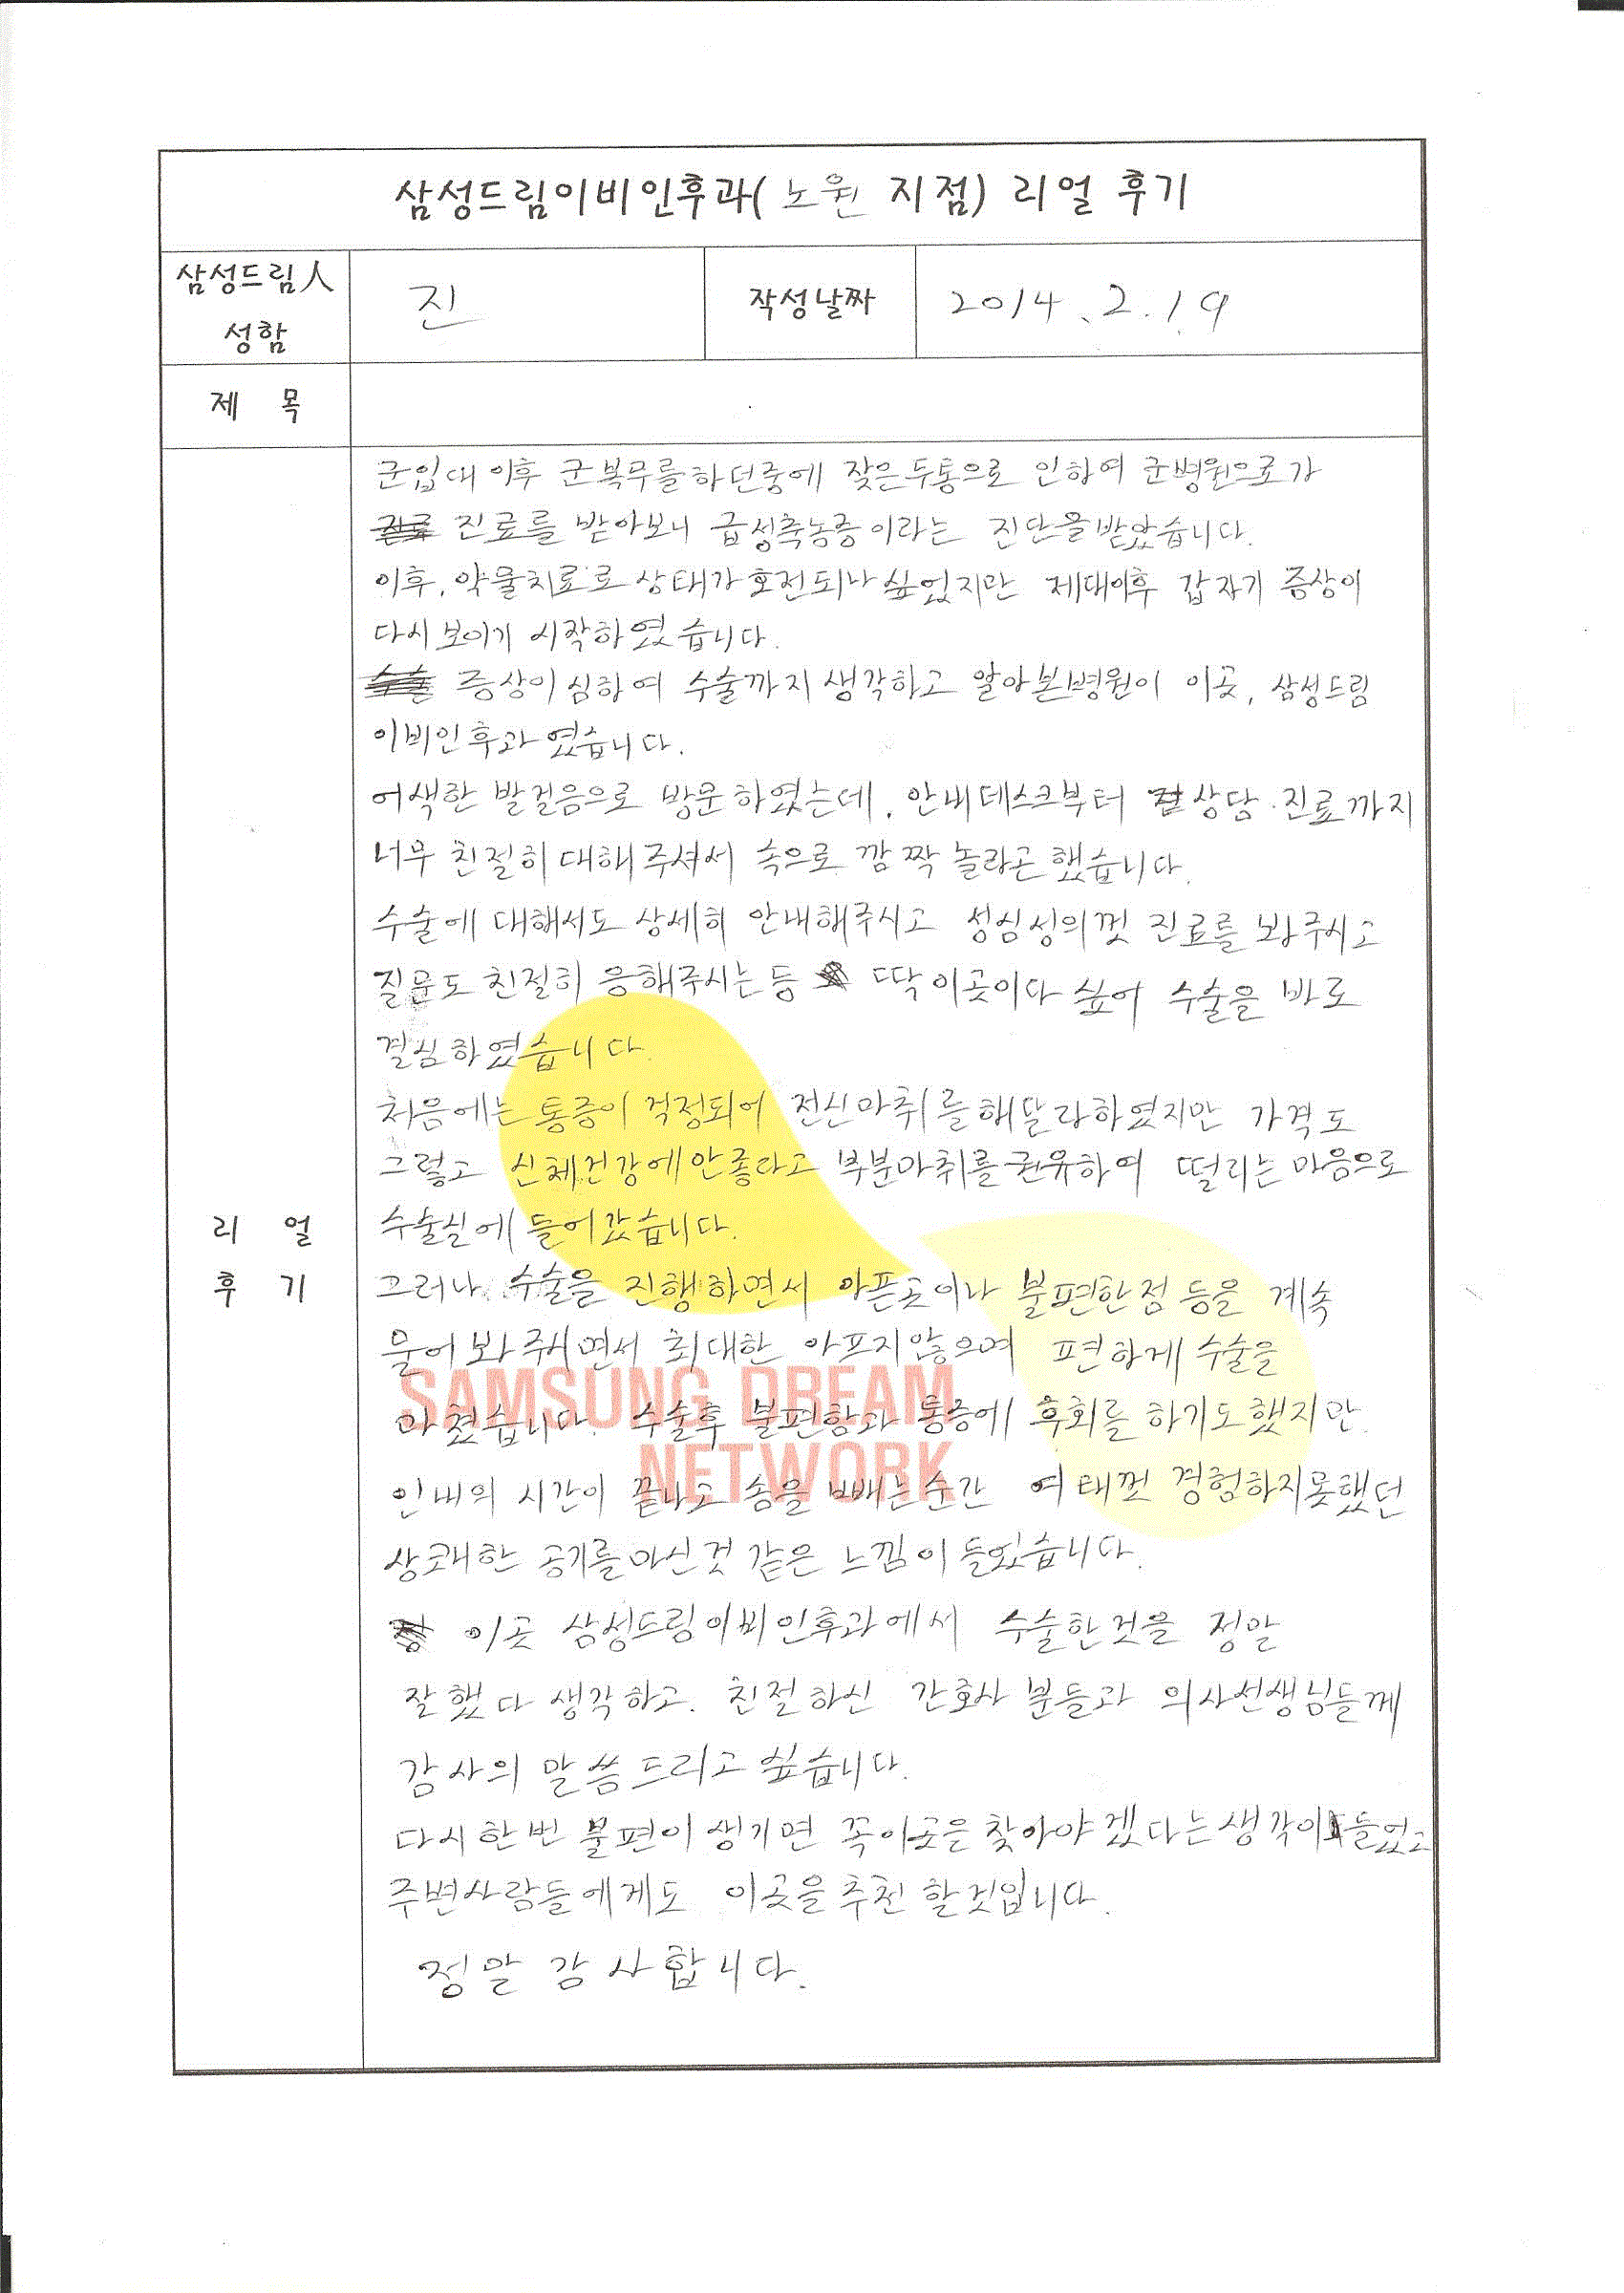 삼성드림이비인후과( 노원 지점) 리얼 후기
삼성드림人
성함
진
작성날짜
2014. 2. 19
제 목
군입대 이후 군복무를하던중에 잦은두통으로 인하여 군병원으로가
진료를 받아보니 급성축농증이라는 진단을받았습니다.
이후, 약물치료로 상태가 호전되나 싶었지만 제대이후 갑자기 증상이
다시 보이기 시작하였습니다.
증상이 심하여 수술까지 생각하고 알아본병원이 이곳, 삼성드림
이비인후과였습니다.
어색한 발걸음으로 방문하였는데, 안내데스크부터 상담·진료까지
너무 친절히 대해주셔서 속으로 깜짝 놀라곤 했습니다.
수술에 대해서도 상세히 안내해주시고 성심성의껏 진료를 봐주시고
질문도 친절히 응해주시는등 딱 이곳이다 싶어 수술을 바로
결심하였습니다.
처음에는 통증이 걱정되어 전신마취를해달라하였지만 가격도
그렇고 신체건강에안좋다고 부분마취를권유하여 떨리는 마음으로
수술실에 들어갔습니다.
리 얼
후 기
그러나, 수술을 진행하면서 아픈곳이나 불편한점 등을 계속
물어봐주시면서 최대한 아프지않으며 편하게 수술을
마쳤습니다. 수술후 불편함과 통증에 후회를 하기도했지만
인내의 시간이 끝나고 솜을 빼는순간 여태껏 경험하지못했던
상쾌한 공기를마신것 같은 느낌이 들었습니다.
이곳 삼성드림이비인후과에서 수술한것을 정말
잘했다 생각하고, 친절하신 간호사 분들과 의사선생님들께
감사의 말씀드리고 싶습니다.
다시한번 불편이 생기면 꼭이곳은찾아야겠다는생각이들었고
주변사람들에게도 이곳을추천 할것입니다.
정말 감사합니다.
SAMSUNG DREAM
NETWORK